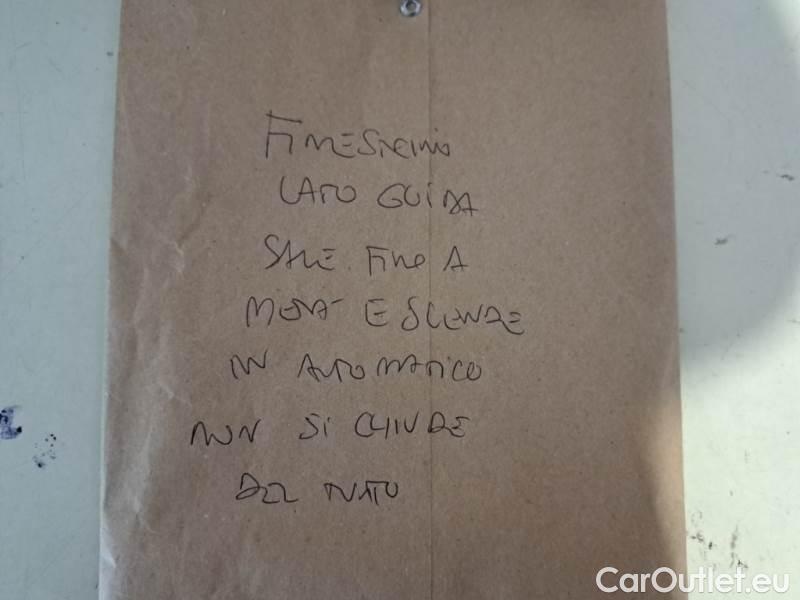 FINESTRINO
LATO GUIDA
SALE FINO A
METÀ E SCENDE
IN AUTOMATICO
NON SI CHIUDE
DEL TUTTO
CarOutlet.eu